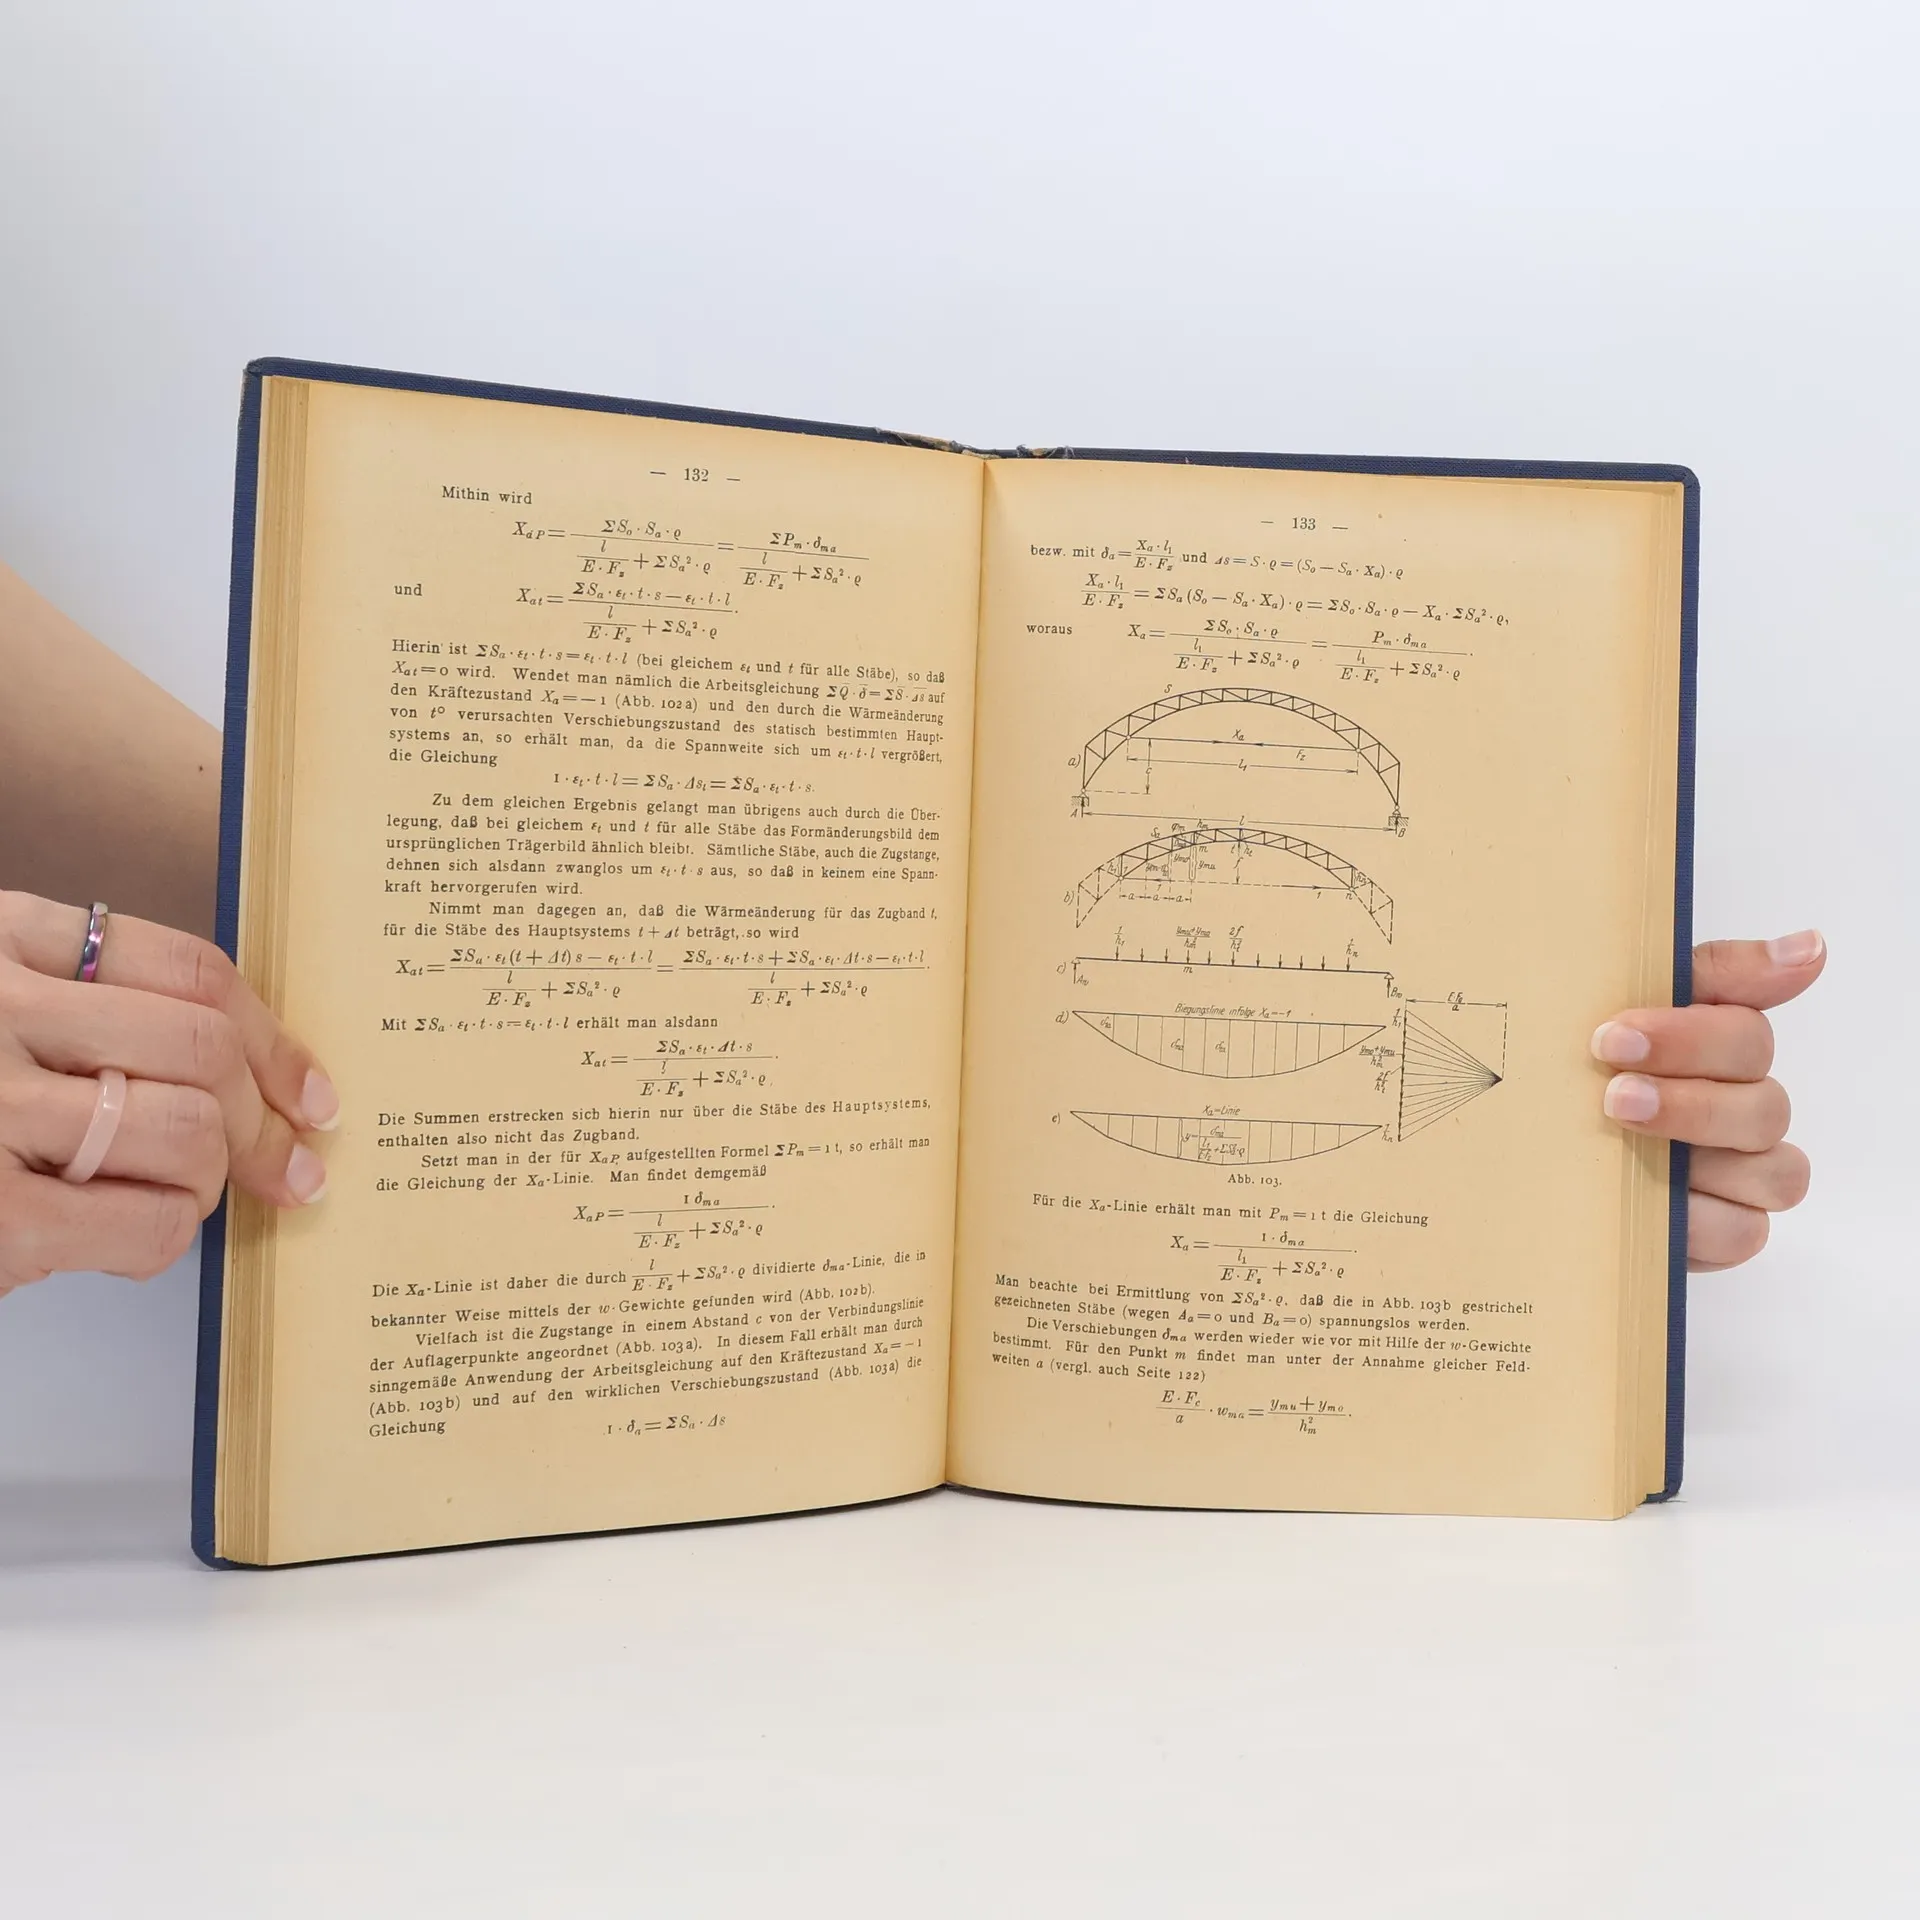 — 132 —
Mithin wird
X_aP = ΣS_o · S_a · ϱ / (l / (E · F_z) + ΣS_a² · ϱ) = ΣP_m · δ_ma / (l / (E · F_z) + ΣS_a² · ϱ)
und X_at = (ΣS_a · ε_t · t · s − ε_t · t · l) / (l / (E · F_z) + ΣS_a² · ϱ).
Hierin ist ΣS_a · ε_t · t · s = ε_t · t · l (bei gleichem ε_t und t für alle Stäbe), so daß
X_at = 0 wird. Wendet man nämlich die Arbeitsgleichung ΣQ̄ · δ̄ = ΣS̄ · Δs̄ auf
den Kräftezustand X_a = − 1 (Abb. 102a) und den durch die Wärmeänderung
von t° verursachten Verschiebungszustand des statisch bestimmten Haupt-
systems an, so erhält man, da die Spannweite sich um ε_t · t · l vergrößert,
die Gleichung
1 · ε_t · t · l = ΣS_a · Δs_t = ΣS_a · ε_t · t · s.
Zu dem gleichen Ergebnis gelangt man übrigens auch durch die Über-
legung, daß bei gleichem ε_t und t für alle Stäbe das Formänderungsbild dem
ursprünglichen Trägerbild ähnlich bleibt. Sämtliche Stäbe, auch die Zugstange,
dehnen sich alsdann zwanglos um ε_t · t · s aus, so daß in keinem eine Spann-
kraft hervorgerufen wird.
Nimmt man dagegen an, daß die Wärmeänderung für das Zugband t,
für die Stäbe des Hauptsystems t + Δt beträgt, so wird
X_at = (ΣS_a · ε_t (t + Δt) s − ε_t · t · l) / (l / (E · F_z) + ΣS_a² · ϱ) = (ΣS_a · ε_t · t · s + ΣS_a · ε_t · Δt · s − ε_t · t · l) / (l / (E · F_z) + ΣS_a² · ϱ).
Mit ΣS_a · ε_t · t · s = ε_t · t · l erhält man alsdann
X_at = ΣS_a · ε_t · Δt · s / (l / (E · F_z) + ΣS_a² · ϱ).
Die Summen erstrecken sich hierin nur über die Stäbe des Hauptsystems,
enthalten also nicht das Zugband.
Setzt man in der für X_aP aufgestellten Formel ΣP_m = 1 t, so erhält man
die Gleichung der X_a-Linie. Man findet demgemäß
X_aP = 1 δ_ma / (l / (E · F_z) + ΣS_a² · ϱ).
Die X_a-Linie ist daher die durch l / (E · F_z) + ΣS_a² · ϱ dividierte δ_ma-Linie, die in
bekannter Weise mittels der w-Gewichte gefunden wird (Abb. 102b).
Vielfach ist die Zugstange in einem Abstand c von der Verbindungslinie
der Auflagerpunkte angeordnet (Abb. 103a). In diesem Fall erhält man durch
sinngemäße Anwendung der Arbeitsgleichung auf den Kräftezustand X_a = − 1
(Abb. 103b) und auf den wirklichen Verschiebungszustand (Abb. 103a) die
Gleichung 1 · δ_a = ΣS_a · Δs
— 133 —
bezw. mit δ_a = X_a · l₁ / (E · F_z) und Δs = S · ϱ = (S_o − S_a · X_a) · ϱ
X_a · l₁ / (E · F_z) = ΣS_a (S_o − S_a · X_a) · ϱ = ΣS_o · S_a · ϱ − X_a · ΣS_a² · ϱ,
woraus X_a = ΣS_o · S_a · ϱ / (l₁ / (E · F_z) + ΣS_a² · ϱ) = P_m · δ_ma / (l₁ / (E · F_z) + ΣS_a² · ϱ).
S
X_a
F_z
a)
c
l₁
A
l
B
S_a
φ_m
h_m
m
f
n
1
1
b)
a a a
1/h₁
(y_mu + y_mo) / h_m²
2f / h_t²
1/h_n
c)
m
A_w
B_w
d)
Biegungslinie infolge X_a = −1
δ_ma
E · F_c / a
1/h₁
(y_mo + y_mu) / h_m²
2f / h_t²
1/h_n
e)
X_a-Linie
y = δ_ma / (l₁ / (E · F_z) + ΣS_a² · ϱ)
Abb. 103.
Für die X_a-Linie erhält man mit P_m = 1 t die Gleichung
X_a = 1 · δ_ma / (l₁ / (E · F_z) + ΣS_a² · ϱ).
Man beachte bei Ermittlung von ΣS_a² · ϱ, daß die in Abb. 103b gestrichelt
gezeichneten Stäbe (wegen A_a = 0 und B_a = 0) spannungslos werden.
Die Verschiebungen δ_ma werden wieder wie vor mit Hilfe der w-Gewichte
bestimmt. Für den Punkt m findet man unter der Annahme gleicher Feld-
weiten a (vergl. auch Seite 122)
E · F_c / a · w_ma = (y_mu + y_mo) / h_m².